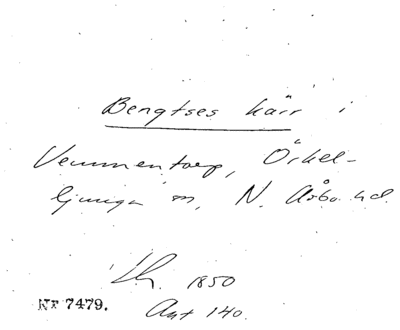 Bengtses kärr i
Vemmentorp, Örkel-
ljunga sn, N. Åsbo hd.
1850
Nr 7479.
Ant 140.